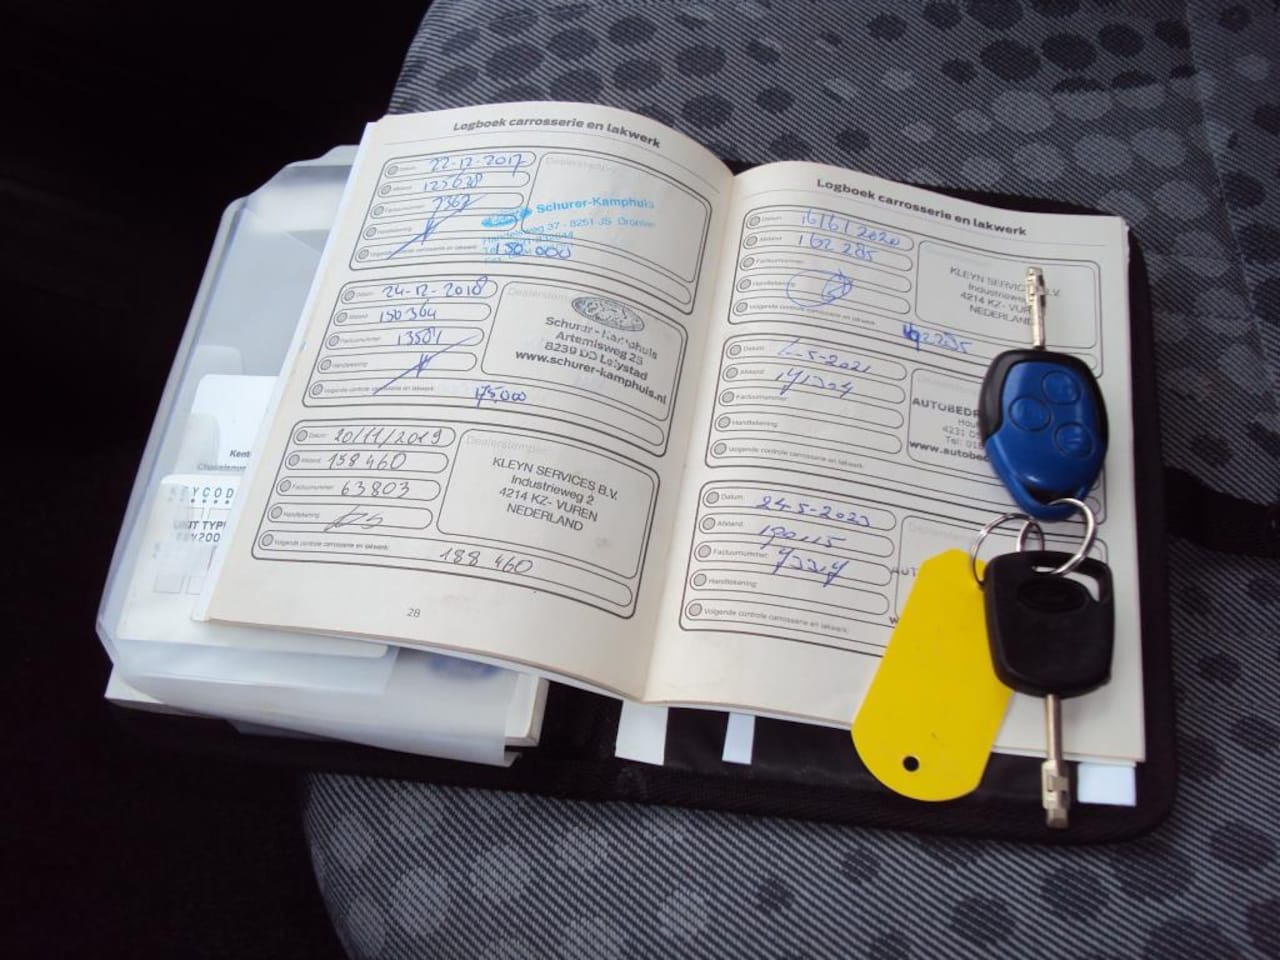 Logboek carrosserie en lakwerk
Datum: 22-12-2017
Afstand: 125628
Factuurnummer: 7367
Handtekening:
Volgende controle carrosserie en lakwerk: 150 000
Dealerstempel
Schurer-Kamphuis
37 - 8251 JS Dronten
Datum: 24-12-2018
Afstand: 150364
Factuurnummer: 13501
Handtekening:
Volgende controle carrosserie en lakwerk: 175.000
Dealerstempel
Schurer-Kamphuis
Artemisweg 23
8239 DD Lelystad
www.schurer-kamphuis.nl
Datum: 20/11/2019
Afstand: 158460
Factuurnummer: 63803
Handtekening:
Volgende controle carrosserie en lakwerk: 188 460
Dealerstempel
KLEYN SERVICES B.V.
Industrieweg 2
4214 KZ- VUREN
NEDERLAND
28
Logboek carrosserie en lakwerk
Datum: 16/6/2020
Afstand: 162 285
Factuurnummer:
Handtekening:
Volgende controle carrosserie en lakwerk:
KLEYN SERVICES B.V.
Industrieweg
4214 KZ- VUREN
NEDERLAND
Datum: -5-2021
Afstand:
Factuurnummer:
Handtekening:
Volgende controle carrosserie en lakwerk:
AUTOBEDR
4231 D
Tel: 018
www.autobed
Datum: 24-5-2023
Afstand:
Factuurnummer:
Handtekening:
Volgende controle carrosserie en lakwerk:
AUT
w
Kent
KEYCOD
UNIT TYP
200